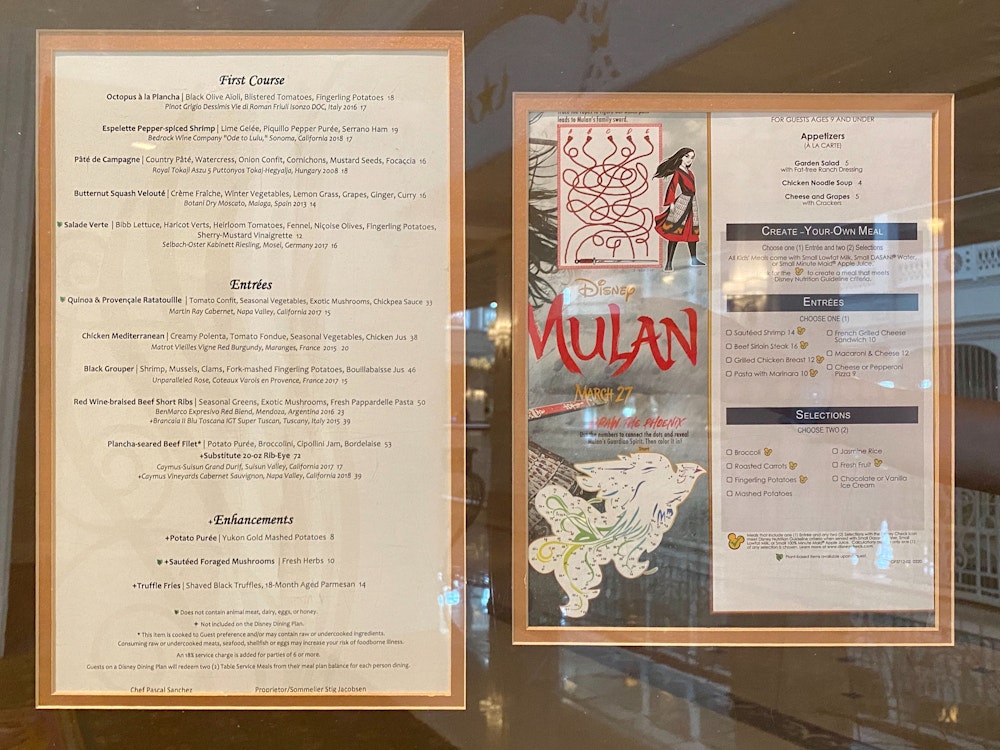 First Course
Octopus à la Plancha | Black Olive Aioli, Blistered Tomatoes, Fingerling Potatoes 18
Pinot Grigio Dessimis Vie di Roman Friuli Isonzo DOC, Italy 2016 17
Espelette Pepper-spiced Shrimp | Lime Gelée, Piquillo Pepper Purée, Serrano Ham 19
Bedrock Wine Company "Ode to Lulu," Sonoma, California 2018 17
Pâté de Campagne | Country Pâté, Watercress, Onion Confit, Cornichons, Mustard Seeds, Focaccia 16
Royal Tokaji Aszu 5 Puttonyos Tokaj-Hegyalja, Hungary 2008 18
Butternut Squash Velouté | Crème Fraîche, Winter Vegetables, Lemon Grass, Grapes, Ginger, Curry 16
Botani Dry Moscato, Malaga, Spain 2013 14
Salade Verte | Bibb Lettuce, Haricot Verts, Heirloom Tomatoes, Fennel, Niçoise Olives, Fingerling Potatoes,
Sherry-Mustard Vinaigrette 12
Selbach-Oster Kabinett Riesling, Mosel, Germany 2017 16
Entrées
Quinoa & Provençale Ratatouille | Tomato Confit, Seasonal Vegetables, Exotic Mushrooms, Chickpea Sauce 33
Martin Ray Cabernet, Napa Valley, California 2017 15
Chicken Mediterranean | Creamy Polenta, Tomato Fondue, Seasonal Vegetables, Chicken Jus 38
Matrot Vieilles Vigne Red Burgundy, Maranges, France 2015 20
Black Grouper | Shrimp, Mussels, Clams, Fork-mashed Fingerling Potatoes, Bouillabaisse Jus 46
Unparalleled Rose, Coteaux Varois en Provence, France 2017 15
Red Wine-braised Beef Short Ribs | Seasonal Greens, Exotic Mushrooms, Fresh Pappardelle Pasta 50
BenMarco Expresivo Red Blend, Mendoza, Argentina 2016 23
+Brancaia Il Blu Toscana IGT Super Tuscan, Tuscany, Italy 2015 39
Plancha-seared Beef Filet* | Potato Purée, Broccolini, Cipollini Jam, Bordelaise 53
+Substitute 20-oz Rib-Eye 72
Caymus-Suisun Grand Durif, Suisun Valley, California 2017 17
+Caymus Vineyards Cabernet Sauvignon, Napa Valley, California 2018 39
+Enhancements
+Potato Purée | Yukon Gold Mashed Potatoes 8
+Sautéed Foraged Mushrooms | Fresh Herbs 10
+Truffle Fries | Shaved Black Truffles, 18-Month Aged Parmesan 14
Does not contain animal meat, dairy, eggs, or honey.
+ Not included on the Disney Dining Plan.
* This item is cooked to Guest preference and/or may contain raw or undercooked ingredients.
Consuming raw or undercooked meats, seafood, shellfish or eggs may increase your risk of foodborne illness.
An 18% service charge is added for parties of 6 or more.
Guests on a Disney Dining Plan will redeem two (2) Table Service Meals from their meal plan balance for each person dining.
Chef Pascal Sanchez Proprietor/Sommelier Stig Jacobsen
leads to Mulan's family sword.
A B C D E
Disney
MULAN
MARCH 27
DRAW THE PHOENIX
Use the numbers to connect the dots and reveal
Mulan's Guardian Spirit. Then color it in!
FOR GUESTS AGES 9 AND UNDER
Appetizers
(À LA CARTE)
Garden Salad 5
with Fat-free Ranch Dressing
Chicken Noodle Soup 4
Cheese and Grapes 5
with Crackers
CREATE-YOUR-OWN MEAL
Choose one (1) Entrée and two (2) Selections
All Kids' Meals come with Small Lowfat Milk, Small DASANI® Water,
or Small Minute Maid® Apple Juice.
for the to create a meal that meets
Disney Nutrition Guideline criteria.
ENTRÉES
CHOOSE ONE (1)
Sautéed Shrimp 14
Beef Sirloin Steak 16
Grilled Chicken Breast 12
Pasta with Marinara 10
French Grilled Cheese
Sandwich 10
Macaroni & Cheese 12
Cheese or Pepperoni
Pizza 9
SELECTIONS
CHOOSE TWO (2)
Broccoli
Roasted Carrots
Fingerling Potatoes
Mashed Potatoes
Jasmine Rice
Fresh Fruit
Chocolate or Vanilla
Ice Cream
Meals that include one (1) Entrée and any two (2) Selections with the
Plant-based items available upon